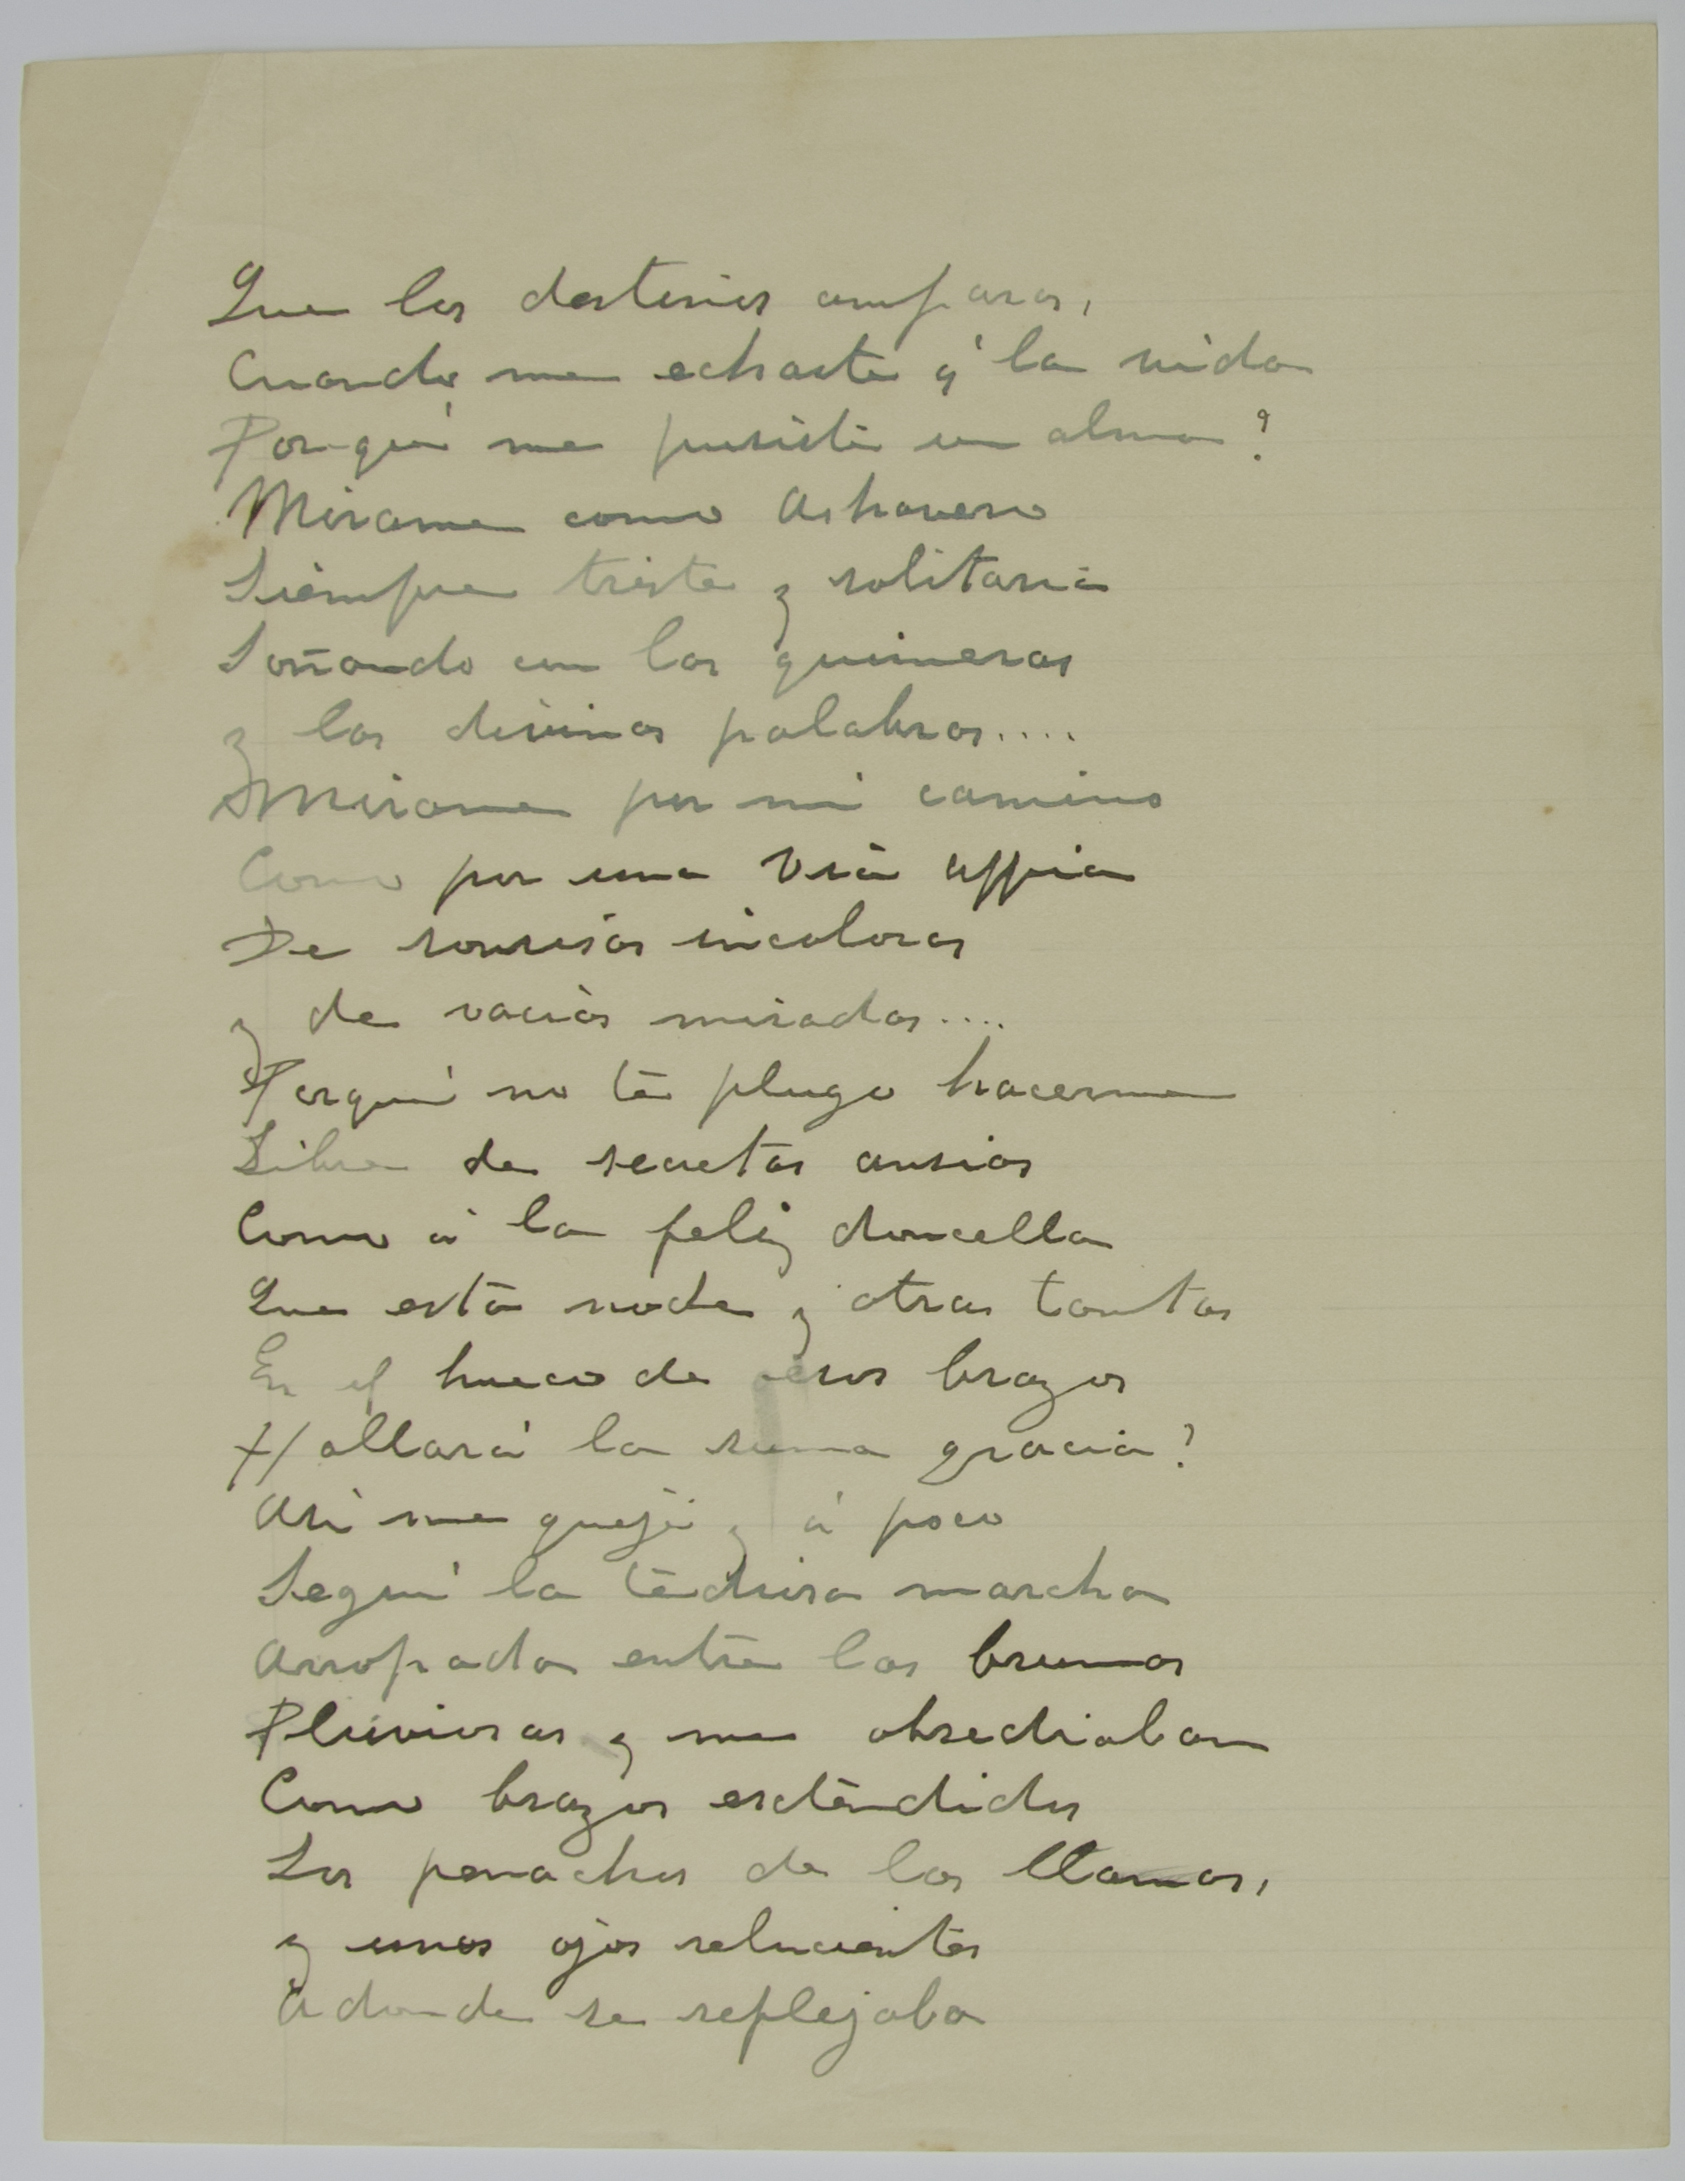 Que los destinos amparas,
Cuando me echaste á la vida
Porqué me pusiste un alma?
Mirame como Ashavero
Siempre triste y solitaria
Soñando con las quimeras
y las divinas palabras....
Mirame por mi camino
Como por una Via Appia
De sonrisas incoloras
y de vacias miradas....
Porqué no te plugo hacerme
Libre de secretas ansias
Como á la feliz doncella
Que esta noche y otras tantas
En el hueco de esos brazos
Hallará la suma gracia?
Asi me quejé y á poco
Seguí la tediosa marcha
Arropada entre las brumas
Pluviosas y me obsediaban
Como brazos extendidos
Los penachos de las llamas,
y unos ojos relucientes
Adonde se reflejaba